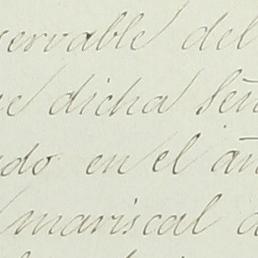 servable del
dicha Señ
do en el añ
mariscal d